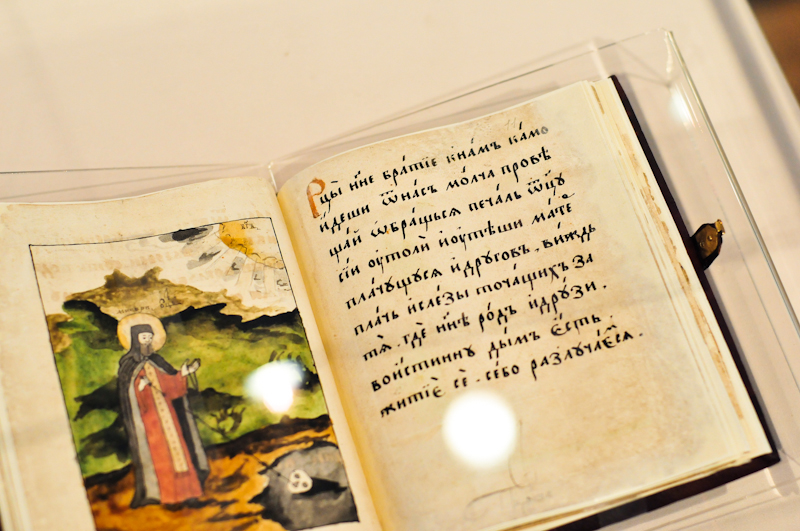 Рцы́ нн҃е бра́тїе кна́мъ ка́мо
и́деши ѿна́съ мо́лча провѣ
ща́й ѡбра́щьсѧ печа́ль ѿцꙋ
сїи ᲂу҆толѝ и҆ᲂу҆тѣ́ши ма́те
пла́чꙋщꙋсѧ и҆дрꙋ́говъ. ви́ждь
пла́чь и҆сле́зы точа́щихъ за
тѧ̀. гдѣ̀ нн҃ѣ ро́дъ и҆дрꙋ́зи.
вои́стиннꙋ ды́мъ є҆́сть
житїѐ сѐ. се́бо разлꙋча́ємсѧ.